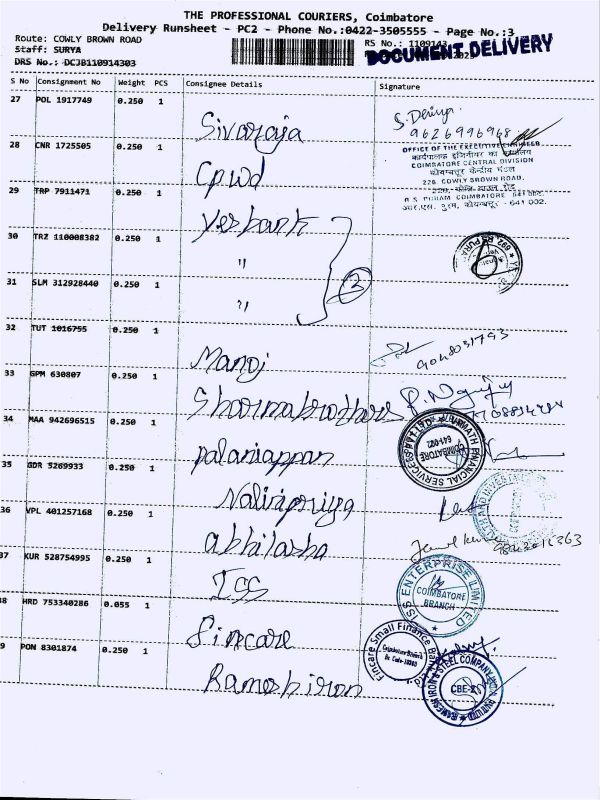 THE PROFESSIONAL COURIERS, Coimbatore
Delivery Runsheet - PC2 - Phone No.:0422-3505555 - Page No.:3
Route: COWLY BROWN ROAD
Staff: SURYA
RS No.: 1109143
DOCUMENT DELIVERY
DRS No.: DCJB110914303
S No Consignment No Weight PCS Consignee Details Signature
27 POL 1917749 0.250 1
Sivaraja
S. Deivya.
9626996968
28 CNR 1725505 0.250 1
Cpwd
OFFICE OF THE EXECUTIVE ENGINEER
कार्यपालक इंजिनीयर का कार्यालय
COIMBATORE CENTRAL DIVISION
कोयम्बत्तूर केन्द्रीय मंडल
228, COWLY BROWN ROAD,
R S PURAM COIMBATORE
आर.एस. पुरम, कोयम्बत्तूर - 641 002.
29 TRP 7911471 0.250 1
Yes bank
30 TRZ 110008382 0.250 1
"
31 SLM 312928440 0.250 1
"
3
32 TUT 1016755 0.250 1
Manoj
33 GPM 630807 0.250 1
Sharmabrothers
34 MAA 942696515 0.250 1
palaniappan
FINANCIAL SERVICES
COIMBATORE
641-002
35 GDR 5269933 0.250 1
Nalinapriya
36 VPL 401257168 0.250 1
abhilasha
37 KUR 528754995 0.250 1
ISS
ISS ENTERPRISE LIMITED
COIMBATORE
BRANCH
38 HRD 753340286 0.055 1
Fincare
Fincare Small Finance Bank
Coimbatore Branch
39 PON 8301874 0.250 1
Ramesh iron
RAMESH IRON & STEEL COMPANY
CBE-2